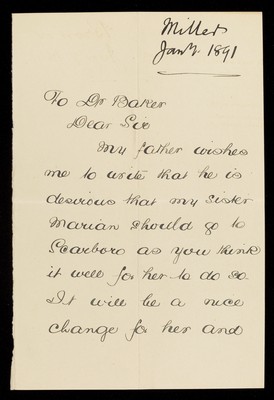 Miller
Jany. 1891
To Dr Baker
Dear Sir
My father wishes
me to write that he is
desirous that my sister
Marian should go to
Scarboro as you think
it well for her to do so
It will be a nice
change for her and